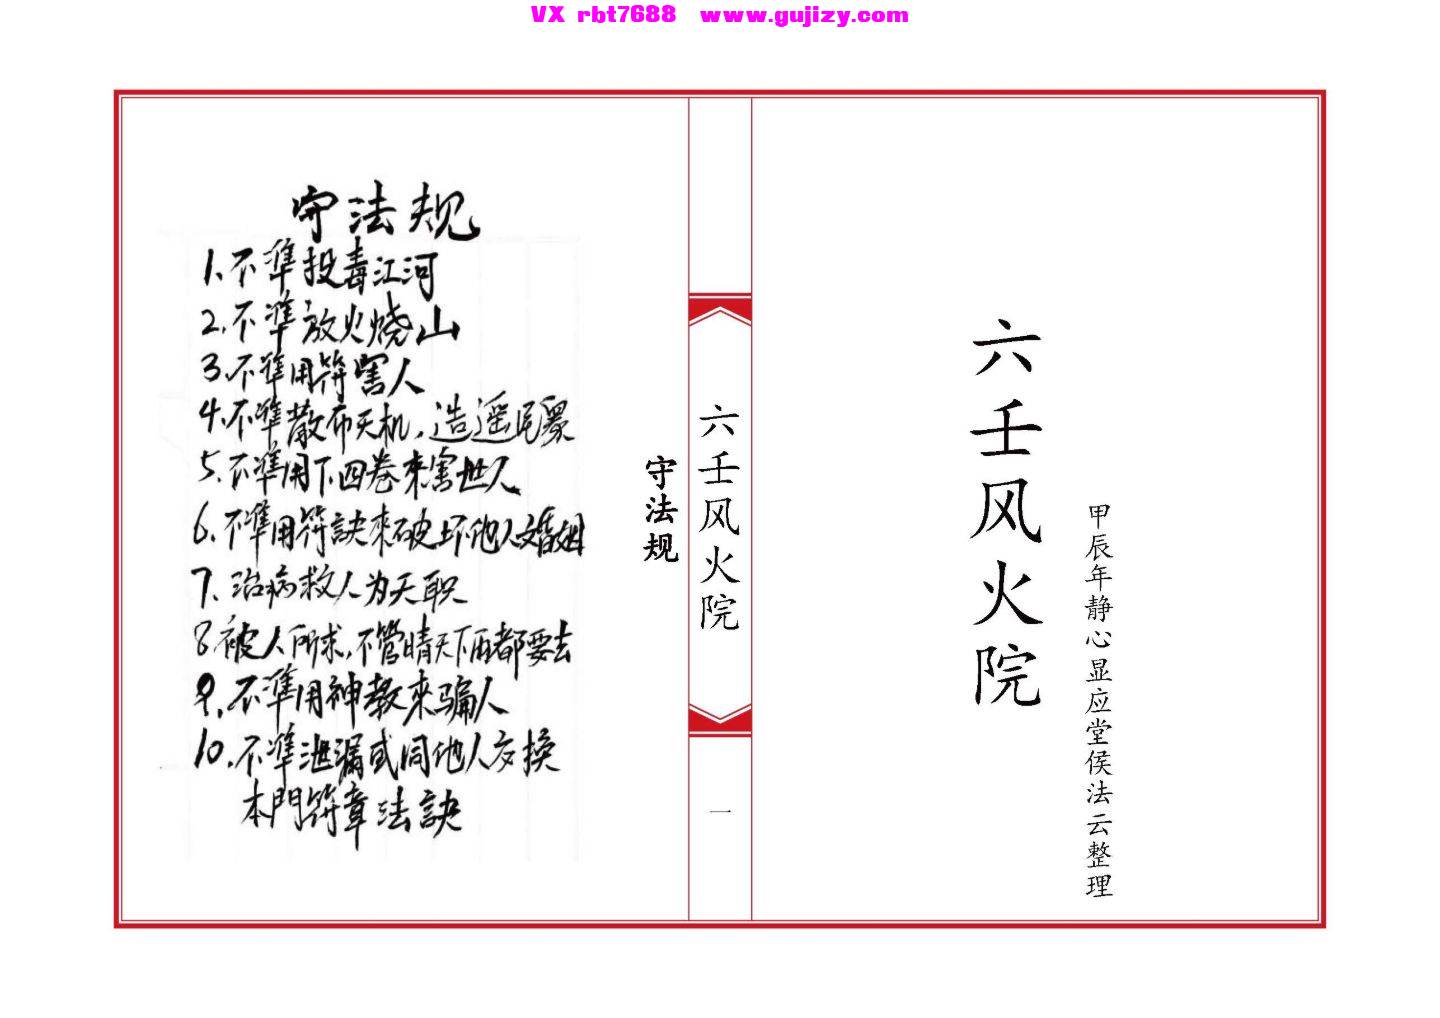 VX rbt7688 www.gujizy.com
六壬风火院
甲辰年静心显应堂侯法云整理
六壬风火院
一
守法规
守法规
1、不準投毒江河
2、不準放火烧山
3、不準用符害人
4、不準散布天机,造遥
5、不準用下四卷來害世人
6、不準用符訣來破坏他人婚姻
7、治病救人为天职
8被人所求,不管晴天下雨都要去
9、不準用神教來骗人
10、不準泄漏或同他人交换
本門符章法訣